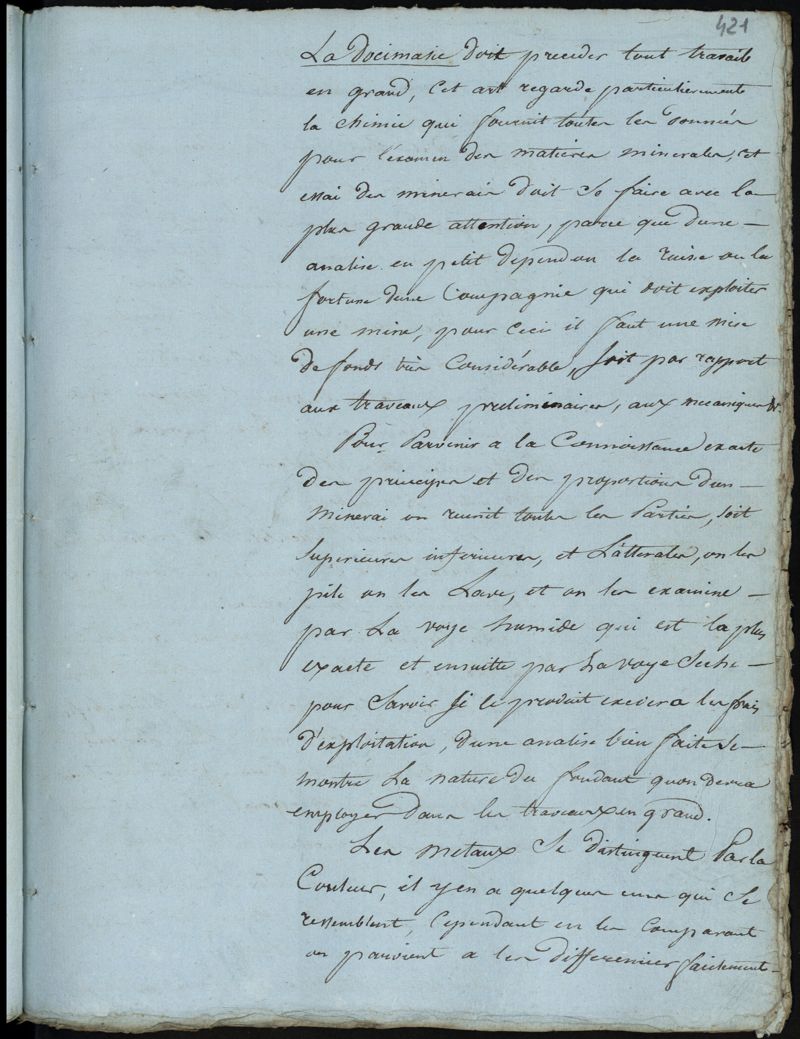 421
La Docimasie doit preceder tout travail
en grand, Cet art regarde particulierement
la chimie qui fournit toutes les données
pour l'examen des matieres minerales, cet
essai des minerais doit se faire avec la
plus grande attention, parce que d'une
analise en petit dependent la ruine ou la
fortune d'une Compagnie qui doit exploiter
une mine, pour ceci il faut une mise
de fonds très Considérable, soit par rapport
aux travaux preliminaires, aux mecaniques &c.
Pour Parvenir a la Connoissance exacte
des principes et des proportions d'un
minerai on reunit toutes les Parties, soit
Superieures inferieures, et Latterales, on les
pile on les Lave, et on les examine
par La voye humide qui est la plus
exacte et ensuitte par La voye Seche
pour Savoir Si le produit exedera les frais
d'exploitation, d'une analise bien faite Se
montre La nature du fondant qu'on devra
employer dans les travaux en grand.
Les métaux Se distinguent Par la
Couleur, il y en a quelques uns qui Se
ressemblent, Cependant en les Comparant
on parvient a les differencier facilement